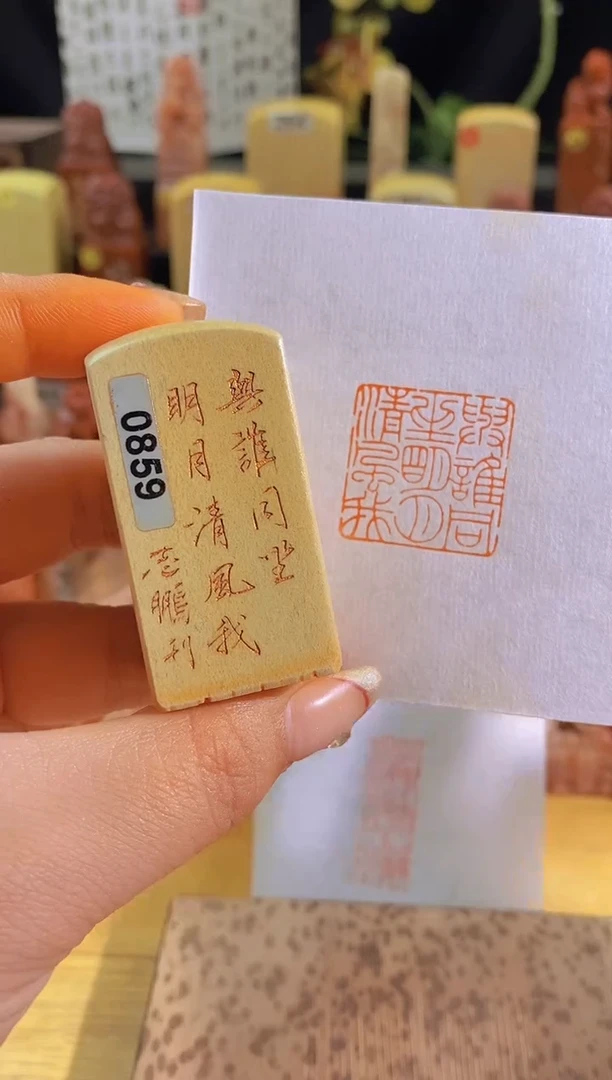 與誰同坐
明月清風我
志鵬刊
0859
與誰同
坐明月
清風我